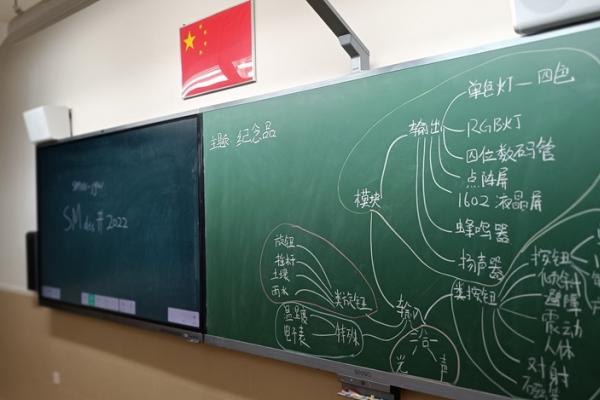 SMdes#2022
主题: 纪念品
模块
输出
单色灯—四色
RGB灯
四位数码管
点阵屏
1602 液晶屏
蜂鸣器
扬声器
旋钮
推杆
土壤
雨水
类旋钮
输入
特殊
类按钮
按钮
倾斜
避障
震动
人体
对射
光
声